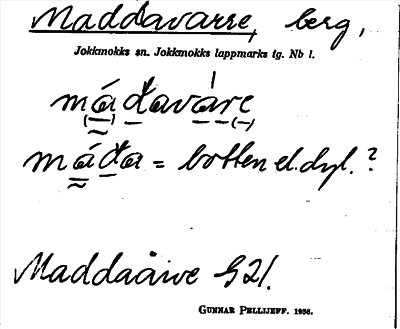 Maddavarre, berg,
Jokkmokks sn. Jokkmokks lappmarks tg. Nb l.
máđaváre
máđa = botten el. dyl. ?
Maddaåive G21.
GUNNAR PELLIJEFF. 1936.